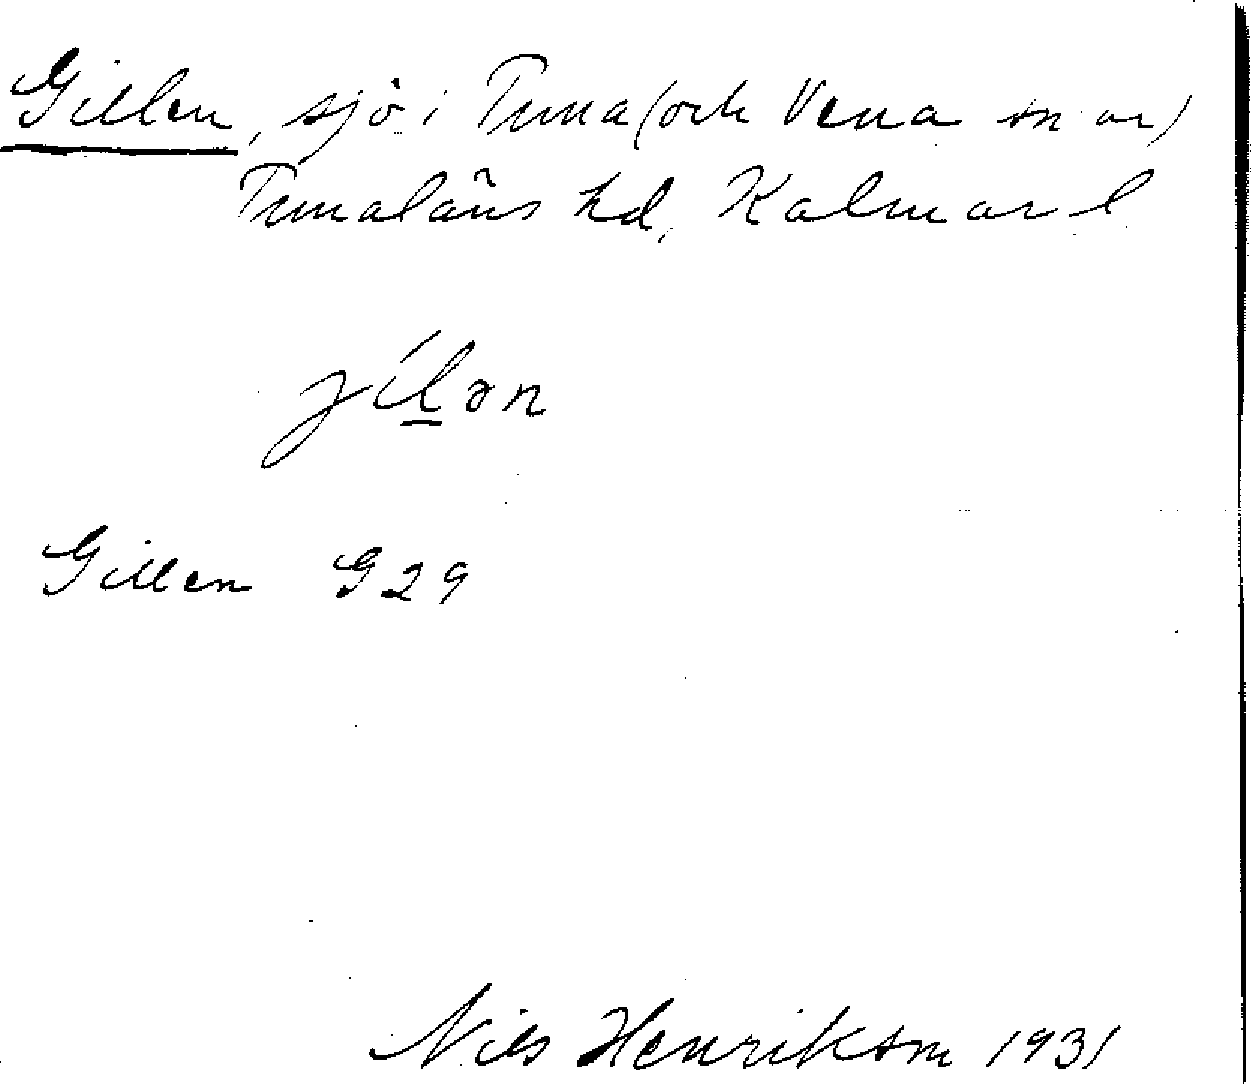 Gillen, sjö i Tuna (och Vena snar)
Tunaläns hd, Kalmar l
jílən
Gillen G29
Nils Henriksson 1931